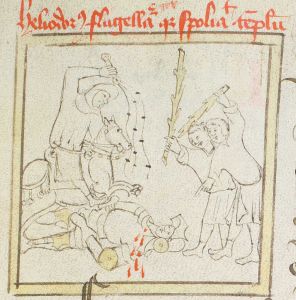 Heliodorꝰ flagellat᷑ qr spoliat tēplū